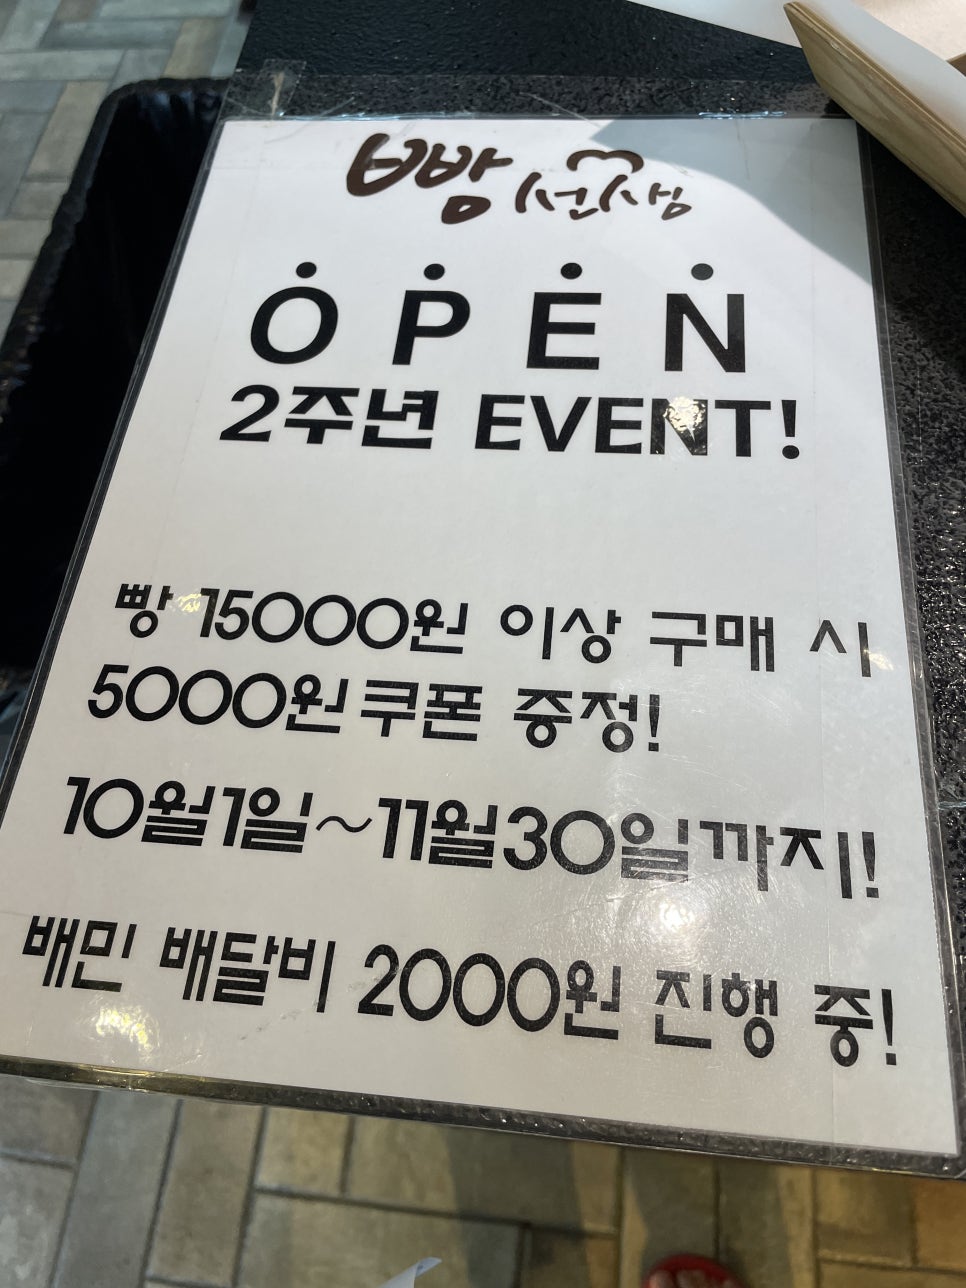 빵선생
OPEN
2주년 EVENT!
빵 15000원 이상 구매 시
5000원 쿠폰 증정!
10월1일~11월30일까지!
배민 배달비 2000원 진행 중!